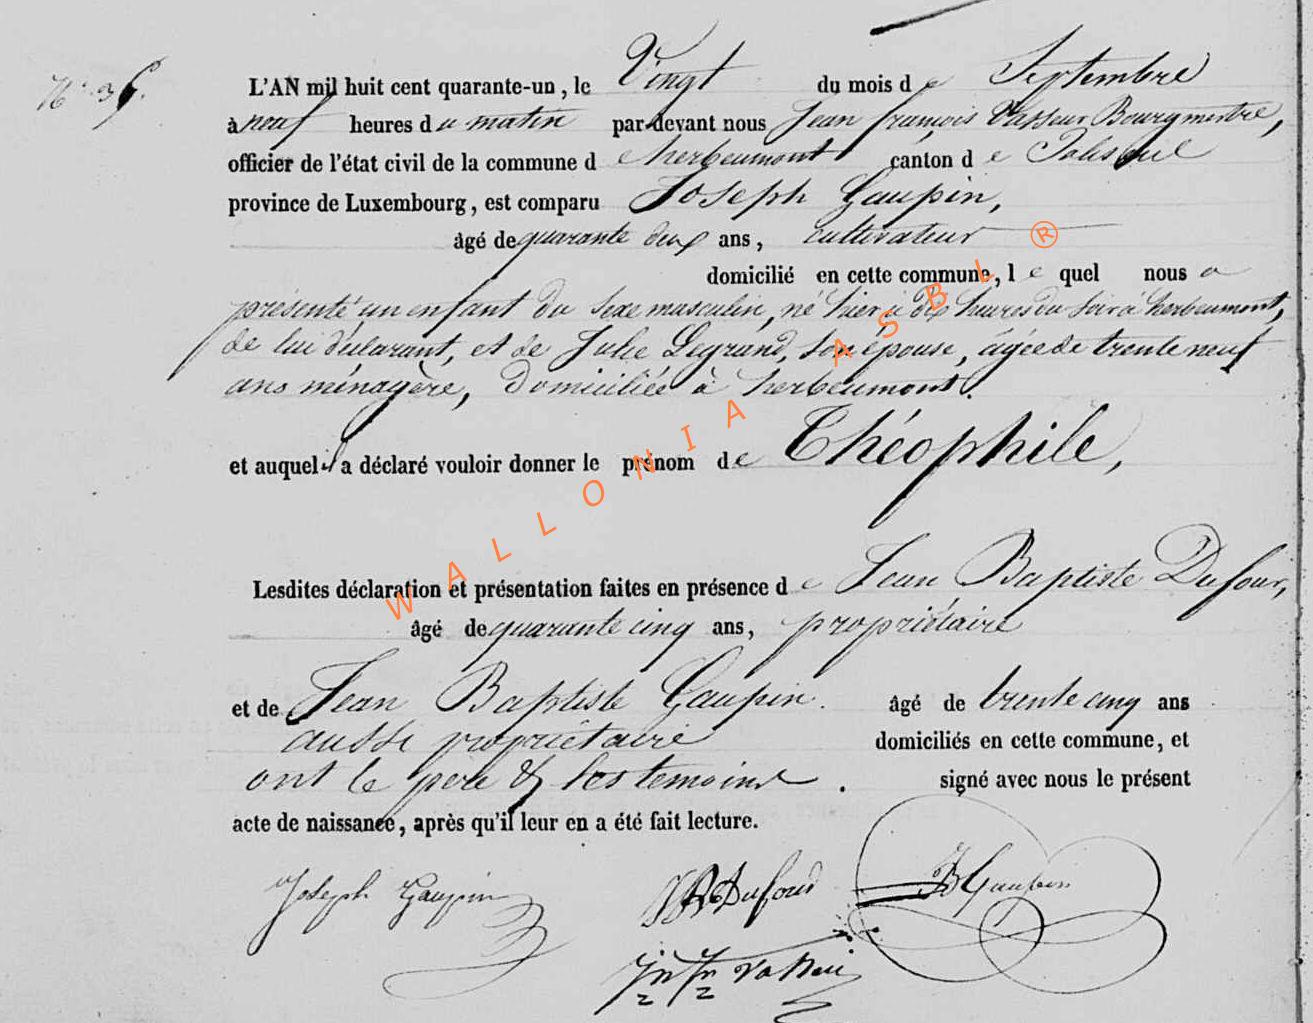 N° 36.
L'AN mil huit cent quarante-un, le Vingt du mois de Septembre
à neuf heures du matin par-devant nous Jean françois Vasseur Bourgmestre,
officier de l'état civil de la commune d'herbeumont canton de Paliseul
province de Luxembourg, est comparu Joseph Gaupin,
âgé de quarante deux ans, cultivateur
domicilié en cette commune, lequel nous a
présenté un enfant du sexe masculin, né hier à dix heures du soir à herbeumont,
de lui déclarant, et de Julie Legrand, son épouse, âgée de trente neuf
ans ménagère, domiciliée à herbeumont.
et auquel il a déclaré vouloir donner le prénom de Théophile,
Lesdites déclaration et présentation faites en présence de Jean Baptiste Dufour,
âgé de quarante cinq ans, propriétaire
et de Jean Baptiste Gaupin. âgé de trente cinq ans
aussi propriétaire domiciliés en cette commune, et
ont le père & les temoins. signé avec nous le présent
acte de naissance, après qu'il leur en a été fait lecture.
Joseph Gaupin JB Dufour JB Gaupin
WALLONIA ASBL ®